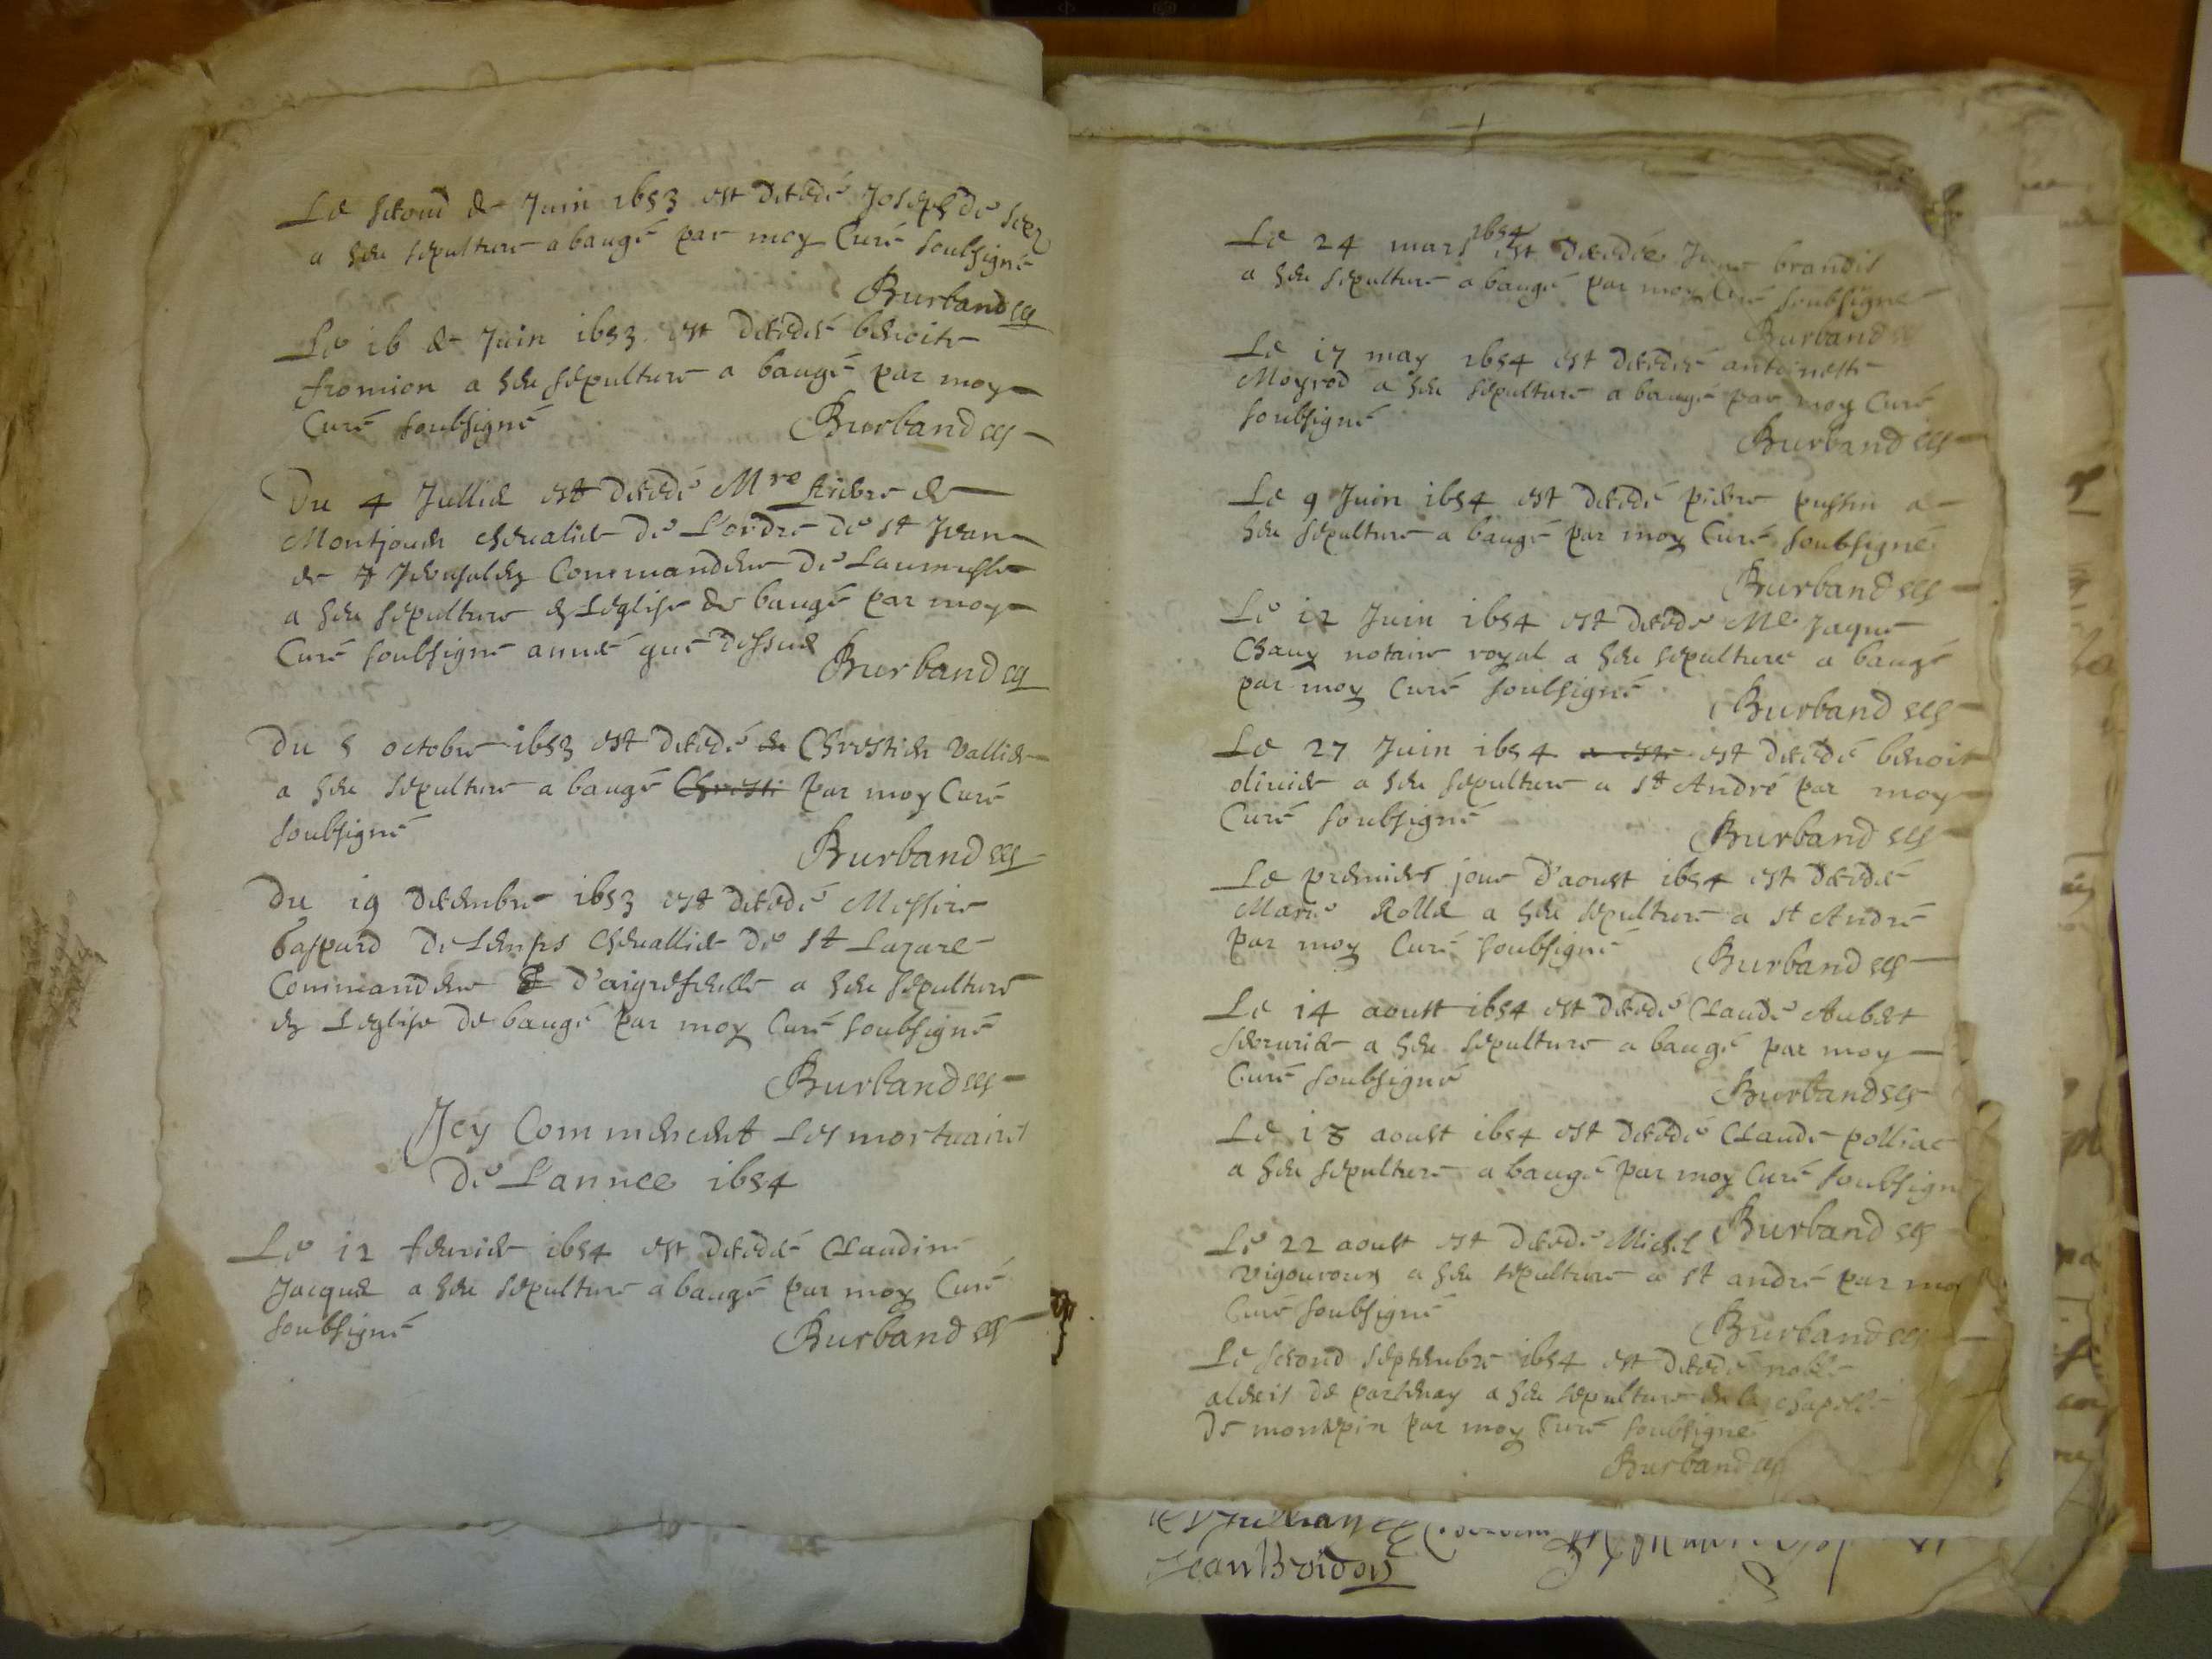 Le second de Juin 1653 est decedé Joseph de
a heu sepulture a baugé par moy Curé soubsigné
Burband
Le 16 de Juin 1653 est decedée benoite
fromion a heu sepulture a baugé par moy
Curé soubsigné
Burband
Du 4 Jullié est decedé Mre
Montjouen chevalier de L'ordre de st Jean
de Jerusalem Commandeur de Laumusse
a heu sepulture en L'eglise de baugé par moy
Curé soubsigné année que dessus
Burband
Du 5 octobre 1653 est decedé Chrestien Vallier
a heu sepulture a baugé Christi par moy Curé
soubsigné
Burband
Du 19 decembre 1653 est decedé Messire
Gaspard de Seyssel Chevallier de St Lazare
Commandeur d'aigrefeuille a heu sepulture
en L'eglise de baugé par moy Curé soubsigné
Burband
Icy Commencent Les mortuaires
de L'annee 1654
Le 12 fevrier 1654 est decedée Claudine
Jacquet a heu sepulture a baugé par moy Curé
soubsigné
Burband
Le 24 mars 1654 est decedée brandis
a heu sepulture a baugé par moy Curé soubsigné
Burband
Le 17 may 1654 est decedée antoinette
Moyrod a heu sepulture a baugé par moy Curé
soubsigné
Burband
Le 9 Juin 1654 est decedé pierre pussin a
heu sepulture a baugé par moy Curé soubsigné
Burband
Le 12 Juin 1654 est decedé Me Jaque
Chauy notaire royal a heu sepulture a baugé
par moy Curé soubsigné
Burband
Le 27 Juin 1654 a esté est decedé benoit
olivier a heu sepulture a st André par moy
Curé soubsigné
Burband
Le premier jour d'aoust 1654 est decedée
Marie Rollet a heu sepulture a st André
par moy Curé soubsigné
Burband
Le 14 aoust 1654 est decedé Claude Aubert
serrurier a heu sepulture a baugé par moy
Curé soubsigné
Burband
Le 18 aoust 1654 est decedé Claude polliac
a heu sepulture a baugé par moy Curé soubsigné
Burband
Le 22 aoust est decedé Michel
vigouroux a heu sepulture a st andré par moy
Curé soubsigné
Burband
Le second septembre 1654 est decedé noble
alexis de parthenay a heu sepulture en la chapelle
de montepin par moy Curé soubsigné
Burband
Jean